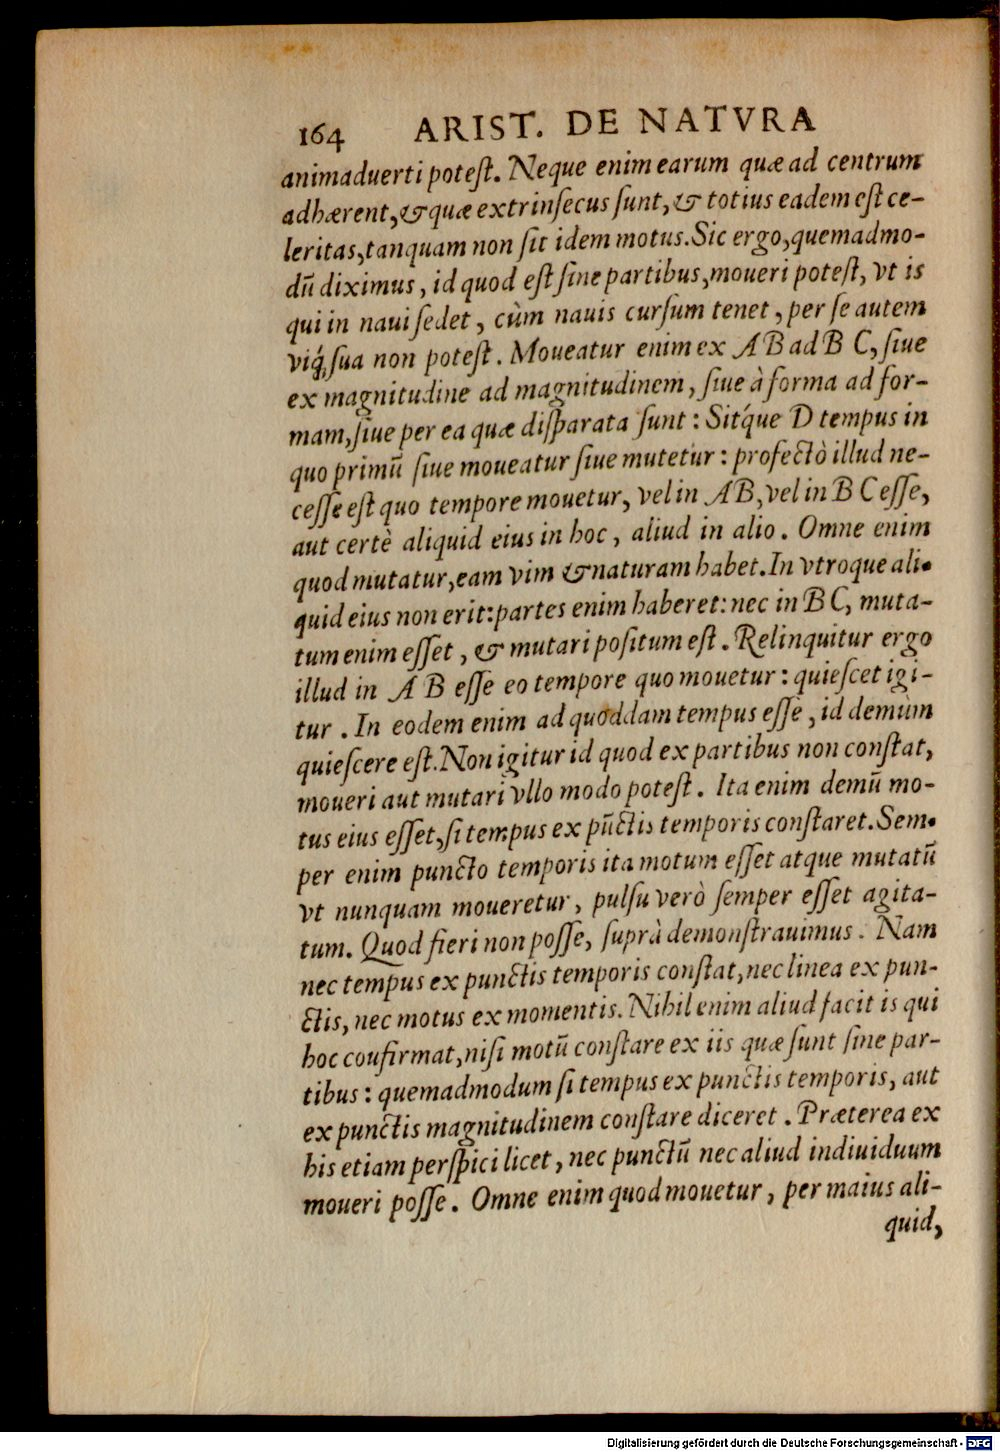 164 ARIST. DE NATVRA
animaduerti poteſt. Neque enim earum quæ ad centrum
adhærent, & quæ extrinſecus ſunt, & totius eadem eſt ce-
leritas, tanquam non ſit idem motus. Sic ergo, quemadmo-
dū diximus, id quod eſt ſine partibus, moueri poteſt, vt is
qui in naui ſedet, cùm nauis curſum tenet, per ſe autem
viq́; ſua non poteſt. Moueatur enim ex A B ad B C, ſiue
ex magnitudine ad magnitudinem, ſiue à forma ad for-
mam, ſiue per ea quæ diſparata ſunt: Sitq́ue D tempus in
quo primū ſiue moueatur ſiue mutetur: profectò illud ne-
ceſſe eſt quo tempore mouetur, vel in A B, vel in B C eſſe,
aut certè aliquid eius in hoc, aliud in alio. Omne enim
quod mutatur, eam vim & naturam habet. In vtroque ali-
quid eius non erit: partes enim haberet: nec in B C, muta-
tum enim eſſet, & mutari poſitum eſt. Relinquitur ergo
illud in A B eſſe eo tempore quo mouetur: quieſcet igi-
tur. In eodem enim ad quoddam tempus eſſe, id demùm
quieſcere eſt. Non igitur id quod ex partibus non conſtat,
moueri aut mutari vllo modo poteſt. Ita enim demū mo-
tus eius eſſet, ſi tempus ex pūctis temporis conſtaret. Sem-
per enim puncto temporis ita motum eſſet atque mutatū
vt nunquam moueretur, pulſu verò ſemper eſſet agita-
tum. Quod fieri non poſſe, ſuprà demonſtrauimus. Nam
nec tempus ex punctis temporis conſtat, nec linea ex pun-
ctis, nec motus ex momentis. Nihil enim aliud facit is qui
hoc coufirmat, niſi motū conſtare ex iis quæ ſunt ſine par-
tibus: quemadmodum ſi tempus ex punctis temporis, aut
ex punctis magnitudinem conſtare diceret. Præterea ex
his etiam perſpici licet, nec punctū nec aliud indiuiduum
moueri poſſe. Omne enim quod mouetur, per maius ali-
quid,
Digitalisierung gefördert durch die Deutsche Forschungsgemeinschaft - DFG